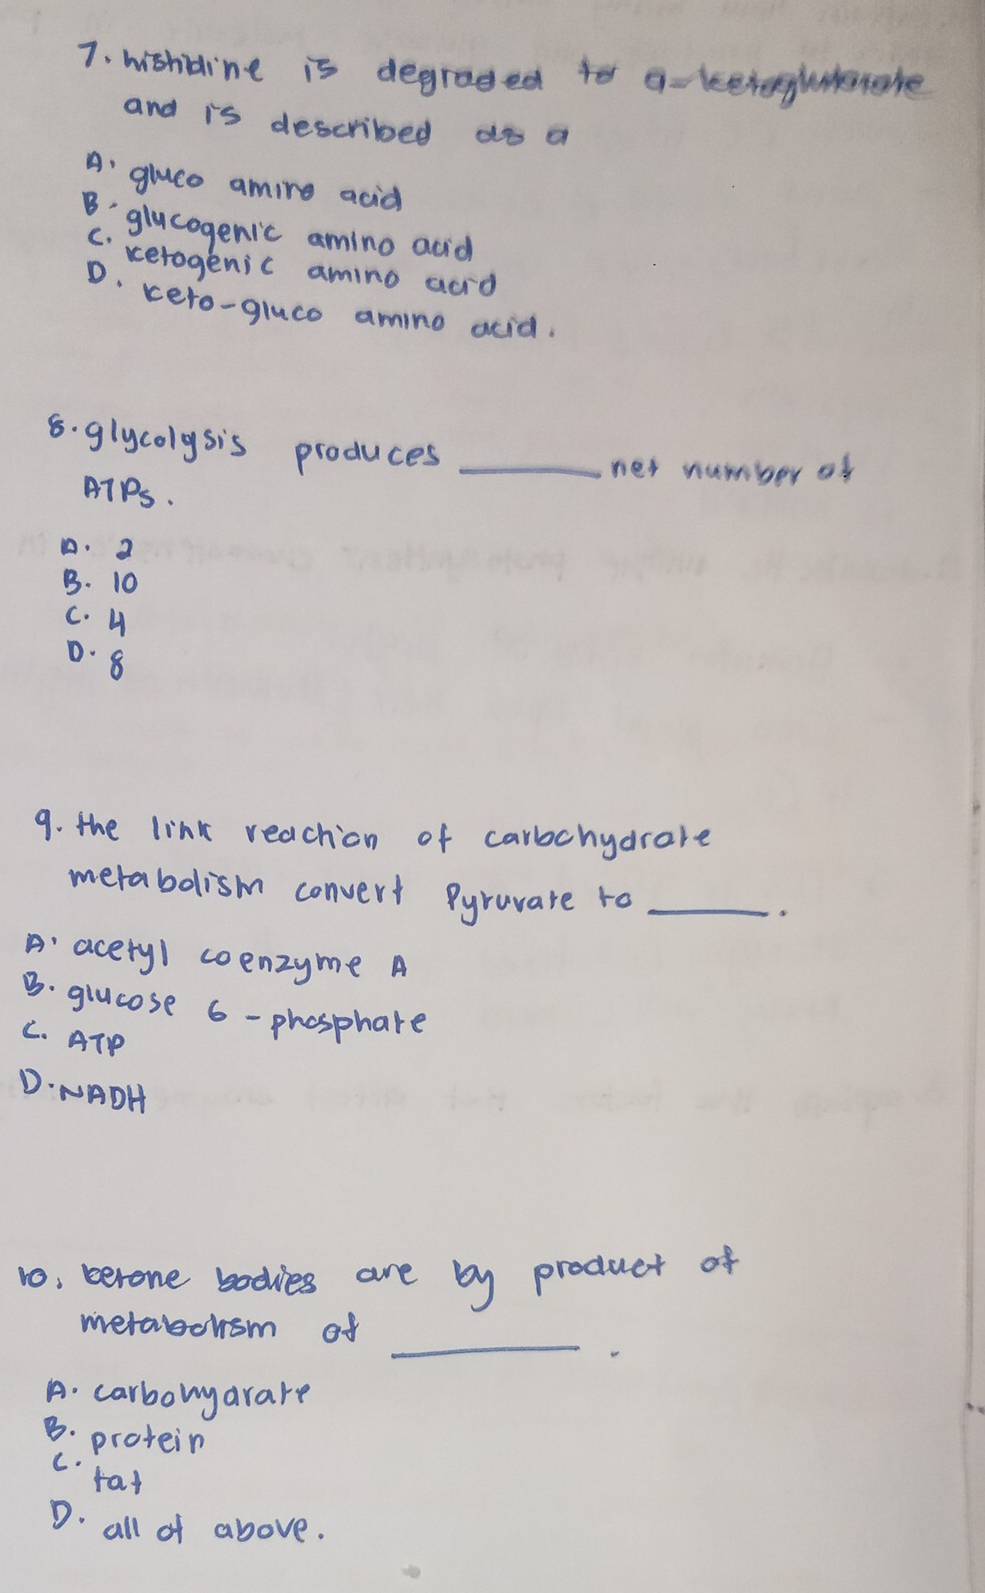 7. histidine is degraded to a-ketoglutarate
and is described as a
A. gluco amino acid
B. glycogenic amino acid
C. ketogenic amino acid
D. keto-gluco amino acid.
8. glycolysis produces ______ net number of
ATPs.
A. 2
B. 10
C. 4
D. 8
9. the link reaction of carbohydrate
metabolism convert Pyruvate to ______.
A. acetyl coenzyme A
B. glucose 6-phosphate
C. ATP
D. NADH
10. ketone bodies are by product of
metabolism of ______.
A. carbohydrate
B. protein
C. fat
D. all of above.